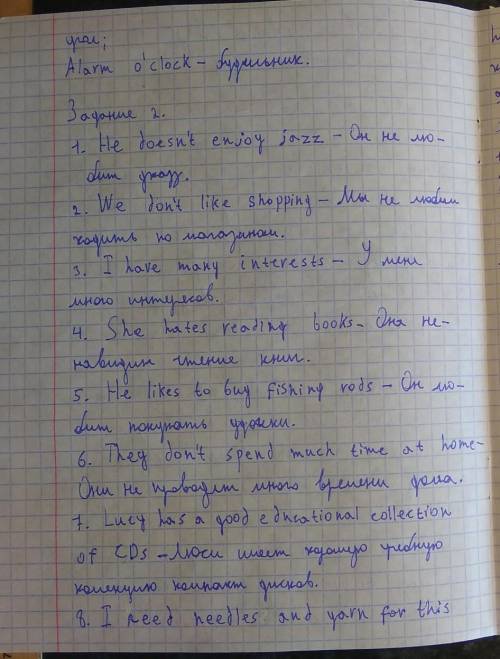 угол;
Alarm o'clock - будильник.
Задание 2.
1. He doesn't enjoy jazz - Он не лю-
бит джазз.
2. We don't like shopping - Мы не любим
ходить по магазинам.
3. I have many interests - У меня
много интересов.
4. She hates reading books - Она не-
навидит чтение книг.
5. He likes to buy fishing rods - Он лю-
бит покупать удочки.
6. They don't spend much time at home -
Они не проводят много времени дома.
7. Lucy has a good educational collection
of CDs - Люси имеет хорошую учебную
колекцию компакт дисков.
8. I need needles and yarn for this